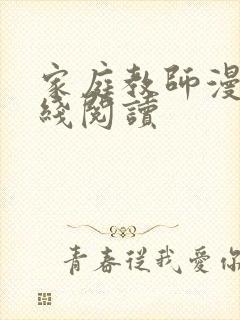 家庭教師漫
綫閱讀
青春從我愛你